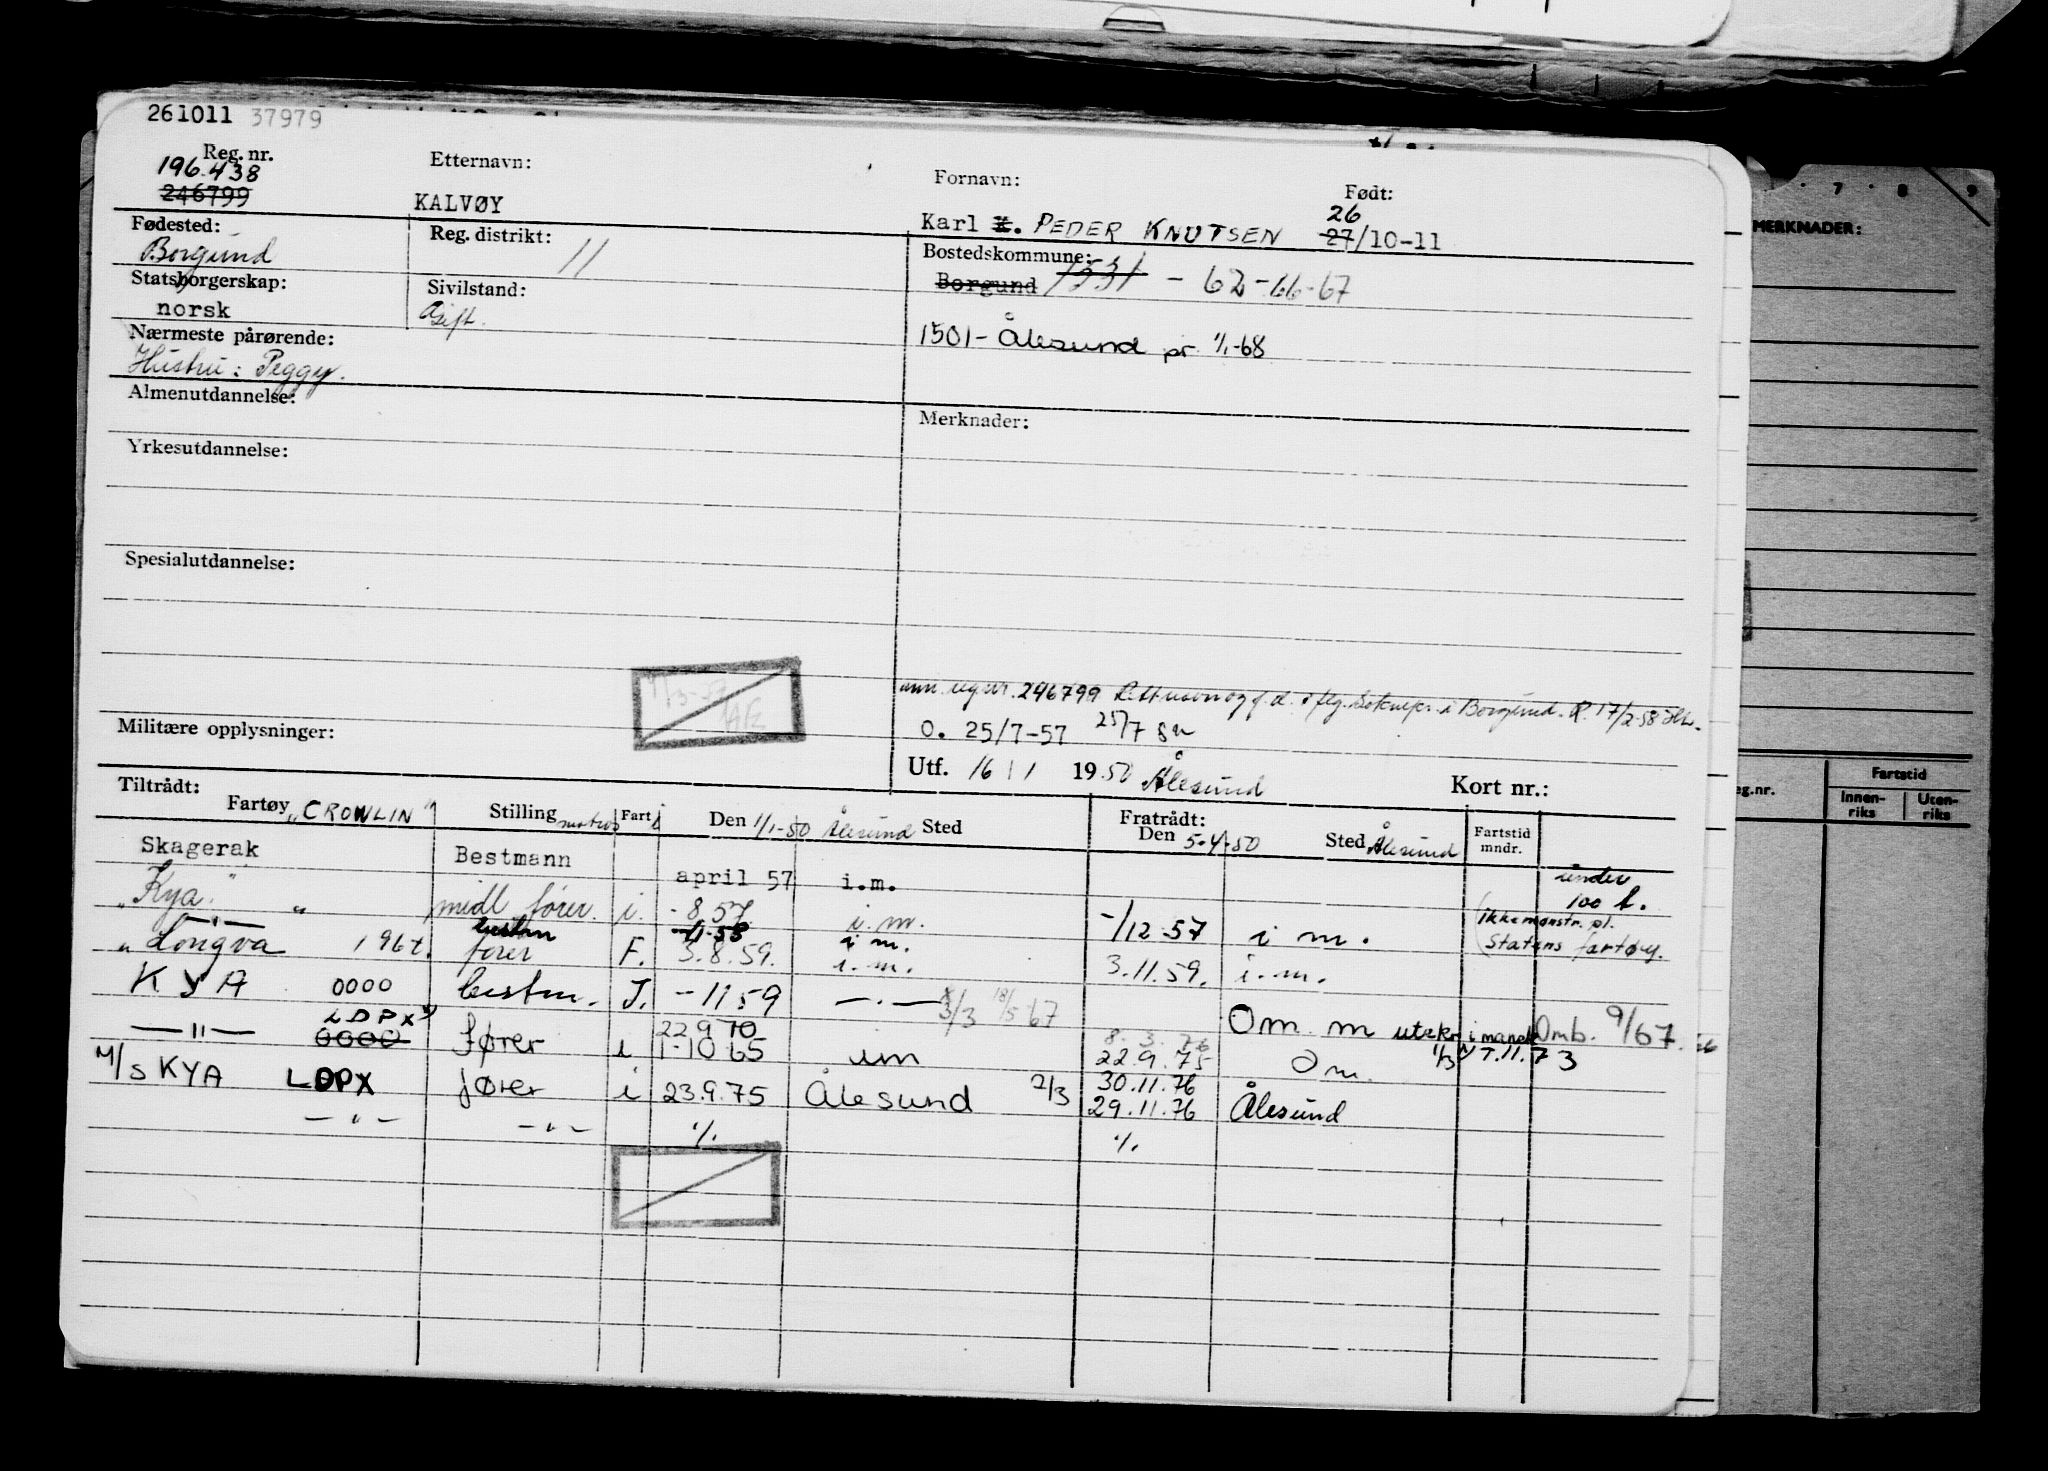 261011 37979
Reg. nr.
196.438
246799
Etternavn:
KALVØY
Fornavn:
Karl K. PEDER KNUTSEN
Født:
26
27/10-11
Fødested:
Borgund
Reg. distrikt:
11
Bostedskommune:
Borgund 1531 - 62-66-67
Statsborgerskap:
norsk
Sivilstand:
Gift.
1501- Ålesund pr. 1/1-68
Nærmeste pårørende:
Hustru: Peggy.
Almenutdannelse:
Merknader:
Yrkesutdannelse:
Spesialutdannelse:
ann. reg.nr. 246799 i Borgund. 17/2-58
O. 25/7-57 25/7
Militære opplysninger:
Utf. 16/1 1950 Ålesund
Kort nr.:
Tiltrådt:
Fartøy "CROWLIN" Stilling matros Fart i Den 1/1-50 Ålesund Sted
Fratrådt:
Den 5.4.50 Sted Ålesund
Fartstid
mndr.
Skagerak Bestmann april 57 i.m. under
100 t.
"Kya" midl fører. i. - 8.57 i.m. -/12-57 i m. (ikke mønstr. pl.
bestm 58 i.m. (Statens fartøy.
"Longva 196 t. fører F. 3.8.59. i.m. 3.11.59. i.m.
KYA 0000 bestm. I. - 11 59 3/3 18/5 67
Om. m Omb. 9/67
LDPX
—"— 0000 fører i 1-10 65 22 9 70 im 22.9.75 8.3.76 Om. T.11.73
M/S KYA LDPX fører i 23.9.75 Ålesund 2/3 30.11.76
29.11.76 Ålesund
— " — — " — ./. ./.
7 8 9
MERKNADER:
eg.nr.
Fartstid
Innen-
riks
Uten-
riks